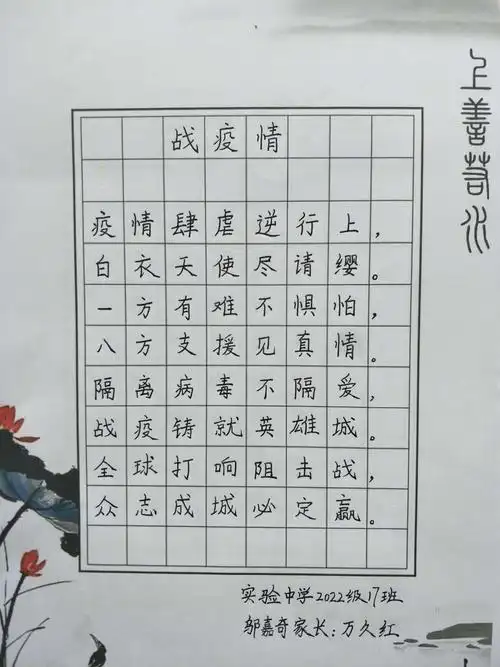 战疫情
疫情肆虐逆行上，
白衣天使尽请缨。
一方有难不惧怕，
八方支援见真情。
隔离病毒不隔爱，
战疫铸就英雄城。
全球打响阻击战，
众志成城必定赢。
实验中学2022级17班
邬嘉奇家长：万久红
上善若水